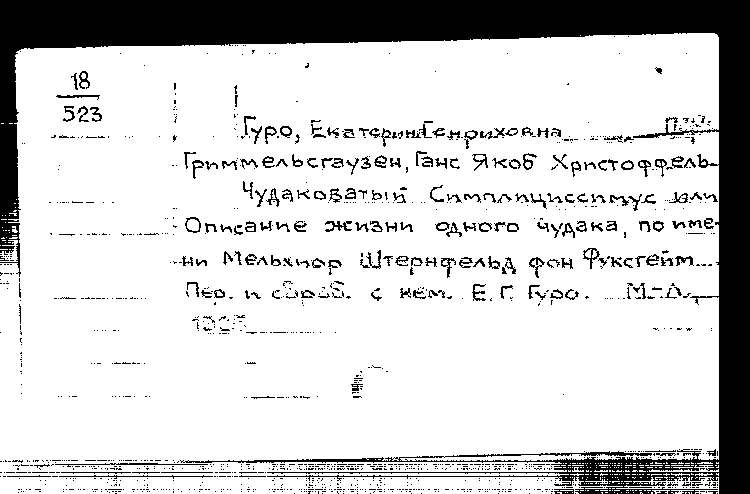 18
523
Гуро, Екатерина Генриховна пер.
Гриммельсгаузен, Ганс Якоб Христоффель
Чудаковатый Симплициссимус или
Описание жизни одного чудака, по име-
ни Мельхиор Штернфельд фон Фуксгейм.
Пер. и обраб. с нем. Е. Г. Гуро. М.-Л.,